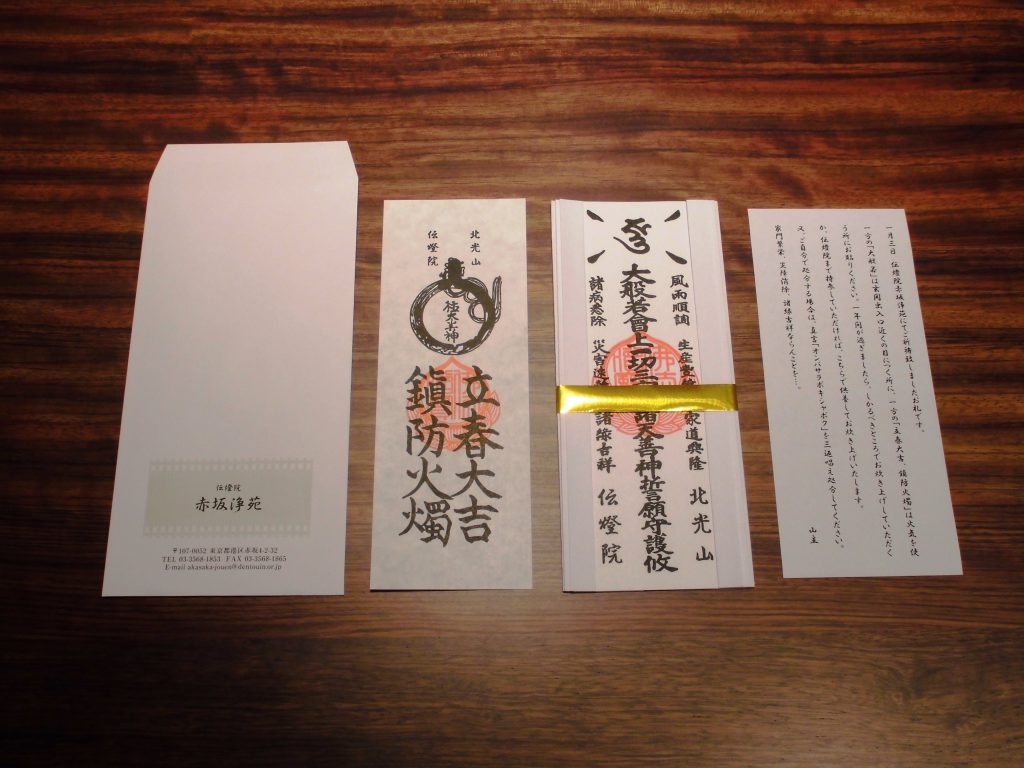 伝燈院
赤坂浄苑
〒107-0052 東京都港区赤坂4-2-32
TEL 03-3568-1853 FAX 03-3568-1865
E-mail akasaka-jouen@dentouin.or.jp
北光山
伝燈院
立春大吉
鎮防火燭
風雨順調 生産 家道興隆 北光山
大般若會上一切 諸大善神祈誓願守護攸
諸病悉除 災害 諸縁吉祥 伝燈院
一月三日 伝燈院赤坂浄苑にてご祈祷致しましたお札です。
一方の「大般若」は玄関出入口近くの目につく所に、一方の「立春大吉、鎮防火燭」は火気を使
う所にお貼りください。一年間が過ぎましたら、しかるべきところでお炊き上げしていただく
か、伝燈院まで持参していただければ、こちらで供養してお炊き上げいたします。
又、ご自分で処分する場合は、真言「オンバサラボキシャボク」を三返唱え処分してください。
家門繁栄、災障消除、諸縁吉祥ならんことを…。
山主